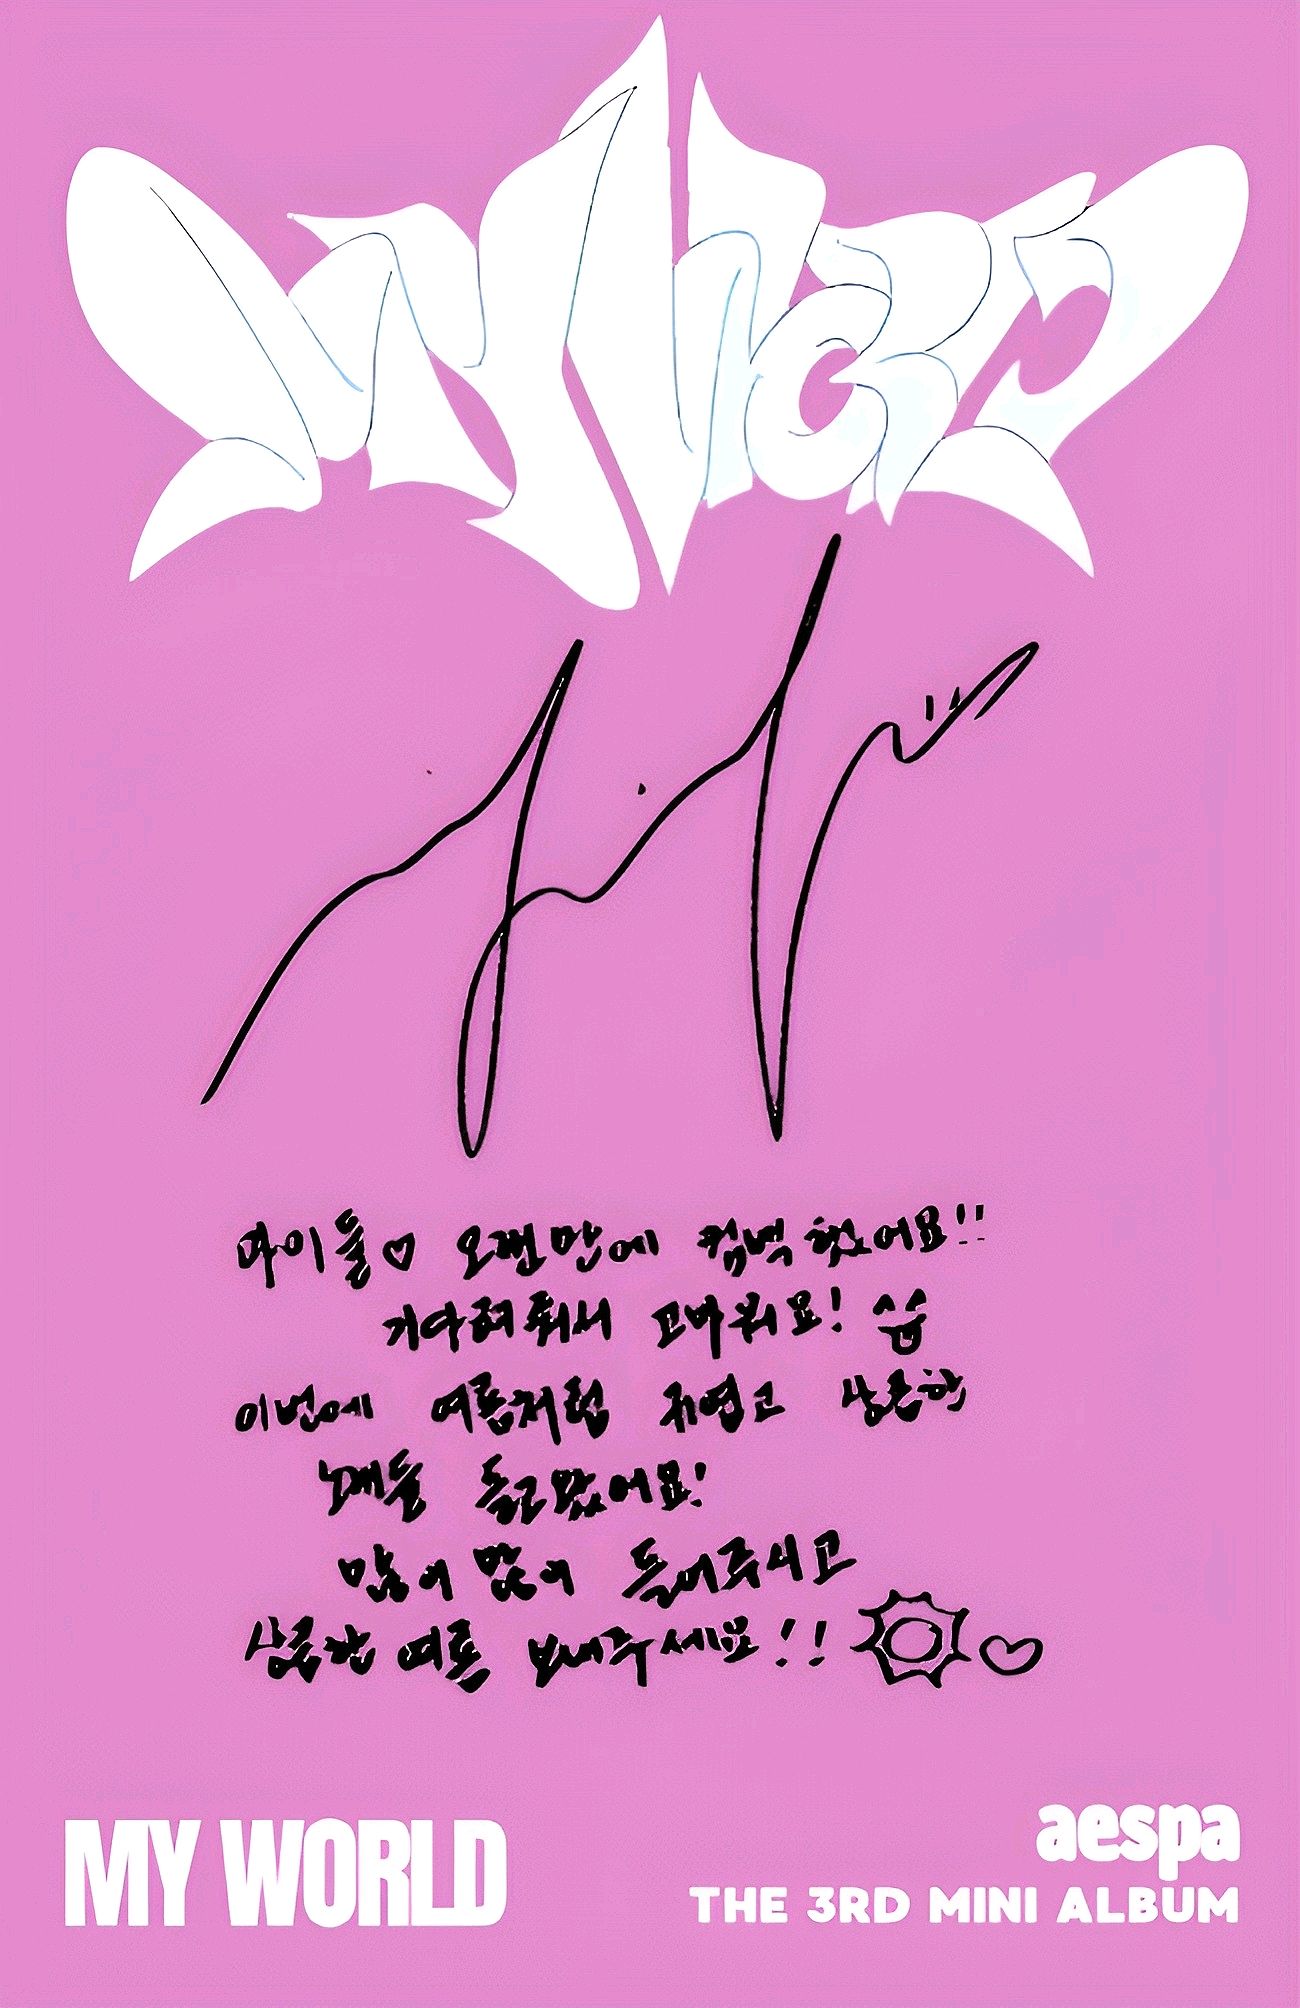 MY WORLD
마이들♡ 오랜만에 컴백했어요!!
기다려줘서 고마워요!
이번에 여름처럼 귀엽고 상큼한
노래들 들고 왔어요!
많이 많이 들어주시고
상큼한 여름 보내주세요!!
MY WORLD
aespa
THE 3RD MINI ALBUM